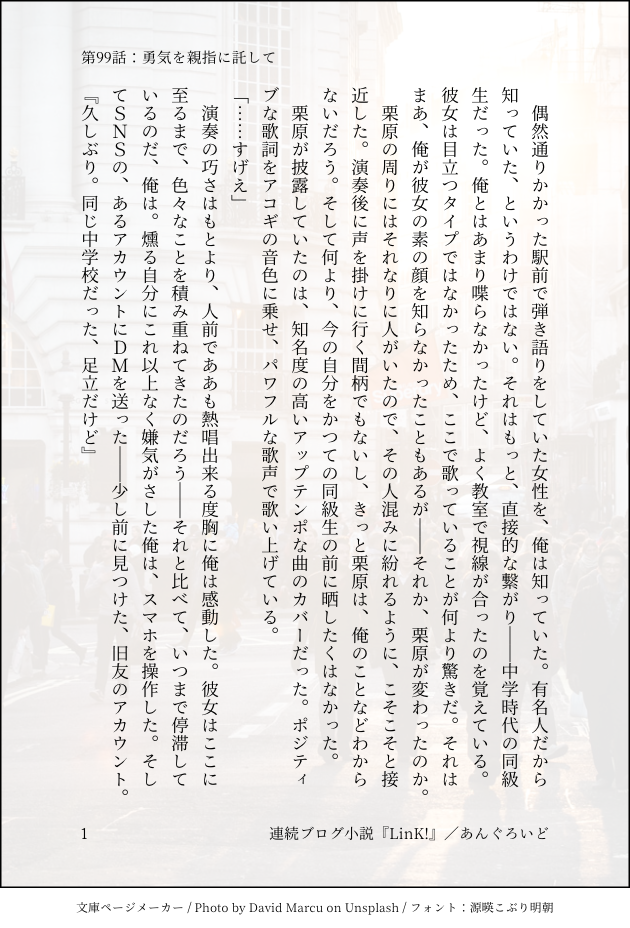 第99話：勇気を親指に託して
　偶然通りかかった駅前で弾き語りをしていた女性を、俺は知っていた。有名人だから
知っていた、というわけではない。それはもっと、直接的な繋がり――中学時代の同級
生だった。俺とはあまり喋らなかったけど、よく教室で視線が合ったのを覚えている。
彼女は目立つタイプではなかったため、ここで歌っていることが何より驚きだ。それは
まあ、俺が彼女の素の顔を知らなかったこともあるが――それか、栗原が変わったのか。
　栗原の周りにはそれなりに人がいたので、その人混みに紛れるように、こそこそと接
近した。演奏後に声を掛けに行く間柄でもないし、きっと栗原は、俺のことなどわから
ないだろう。そして何より、今の自分をかつての同級生の前に晒したくはなかった。
　栗原が披露していたのは、知名度の高いアップテンポな曲のカバーだった。ポジティ
ブな歌詞をアコギの音色に乗せ、パワフルな歌声で歌い上げている。
「……すげえ」
　演奏の巧さはもとより、人前でああも熱唱出来る度胸に俺は感動した。彼女はここに
至るまで、色々なことを積み重ねてきたのだろう――それと比べて、いつまで停滞して
いるのだ、俺は。燻る自分にこれ以上なく嫌気がさした俺は、スマホを操作した。そし
てＳＮＳの、あるアカウントにＤＭを送った――少し前に見つけた、旧友のアカウント。
『久しぶり。同じ中学校だった、足立だけど』
1
連続ブログ小説『LinK!』／あんぐろいど
文庫ページメーカー / Photo by David Marcu on Unsplash / フォント：源暎こぶり明朝